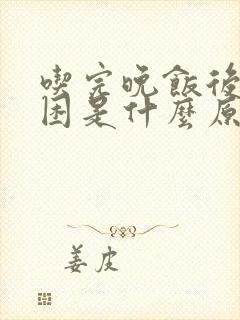 喫完晚飯後
困是什麼原
姜皮